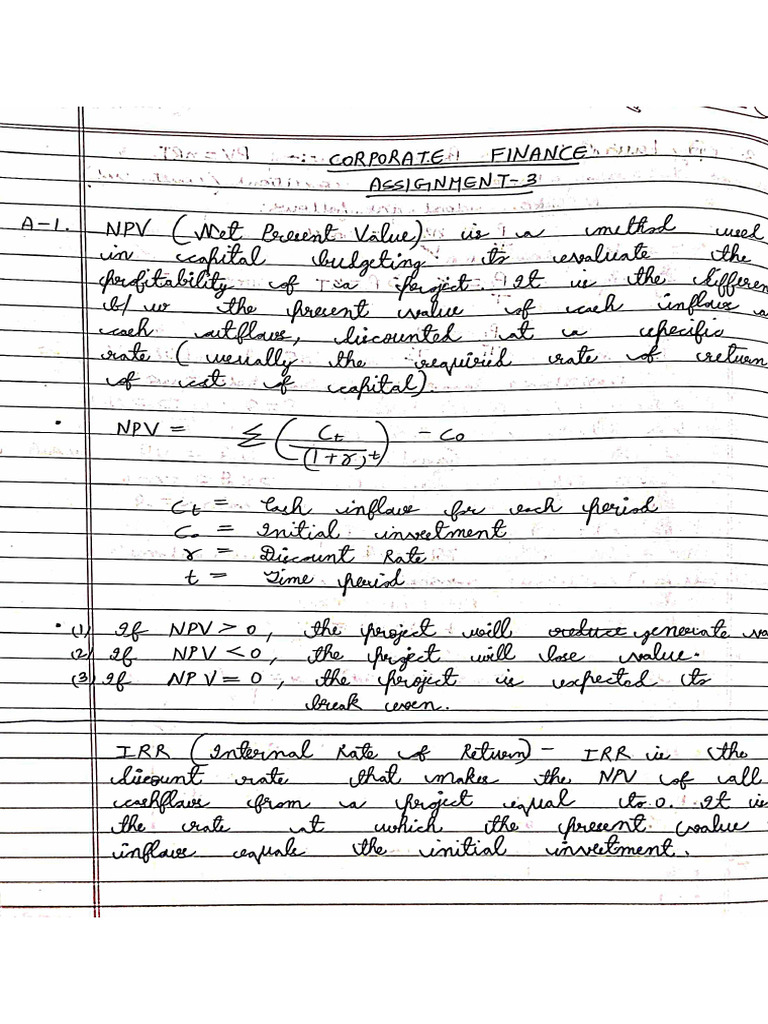 CORPORATE FINANCE
ASSIGNMENT-3
A-1. NPV (Net Present Value) is a method used
in capital budgeting to evaluate the
profitability of a project. It is the differen
b/w the present value of cash inflows a
cash outflows, discounted at a specific
rate (usually the required rate of return
of cost of capital).
• NPV = Σ (Ct/(1+r)^t) - Co
Ct = Cash inflows for each period
Co = Initial investment
r = Discount Rate
t = Time period
• (1) If NPV > 0, the project will reduce generate va
(2) If NPV < 0, the project will lose value.
(3) If NPV = 0, the project is expected to
break even.
IRR (Internal Rate of Return) - IRR is the
discount rate that makes the NPV of all
cashflows from a project equal to 0. It is
the rate at which the present value
inflows equals the initial investment.